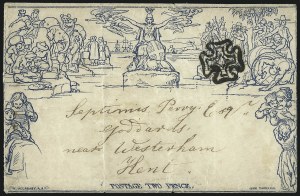 Septimus Perry Esqr
Goddards
near Westerham
Kent.
POSTAGE TWO PENCE.